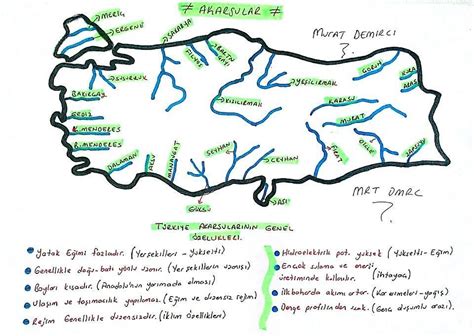 ≠ AKARSULAR ≠
MERİÇ
ERGENE
SAKARYA
MURAT DEMİRCİ
?
FİLYOS
BARTIN
ÇAYI
YEŞİLIRMAK
ÇORUH
KURA
ARAS
SUSURLUK
BAKIRÇAY
KIZILIRMAK
KARASU
GEDİZ
MURAT
K.MENDERES
B.MENDERES
SEYHAN
DICLE
FIRAT
DALAMAN
AKSU
MANAVGAT
CEYHAN
GÖKSU
ASİ
MRT DMRC
?
TÜRKİYE AKARSULARININ GENEL
ÖZELLİKLERİ.
Yatak Eğimi fazladır. (Yerşekilleri - Yükselti)
Genellikle doğu-batı yönlü uzanır. (Yerşekillerin uzanışı)
Boyları kısadır. (Anadolu'nun yarımada olması)
Ulaşım ve taşımacılık yapılamaz. (Eğim ve düzensiz rejim)
Rejim Genellikle düzensizdir. (İklim özellikleri)
Hidroelektrik pot. yüksek (Yükselti - Eğim)
Ençok sulama ve enerji
üretiminde kullanılır. (ihtiyaç)
İlkbaharda akımı artar. (Kar erimeleri - yağış)
Denge profilinden uzak. (Genç düzlenim arazi)